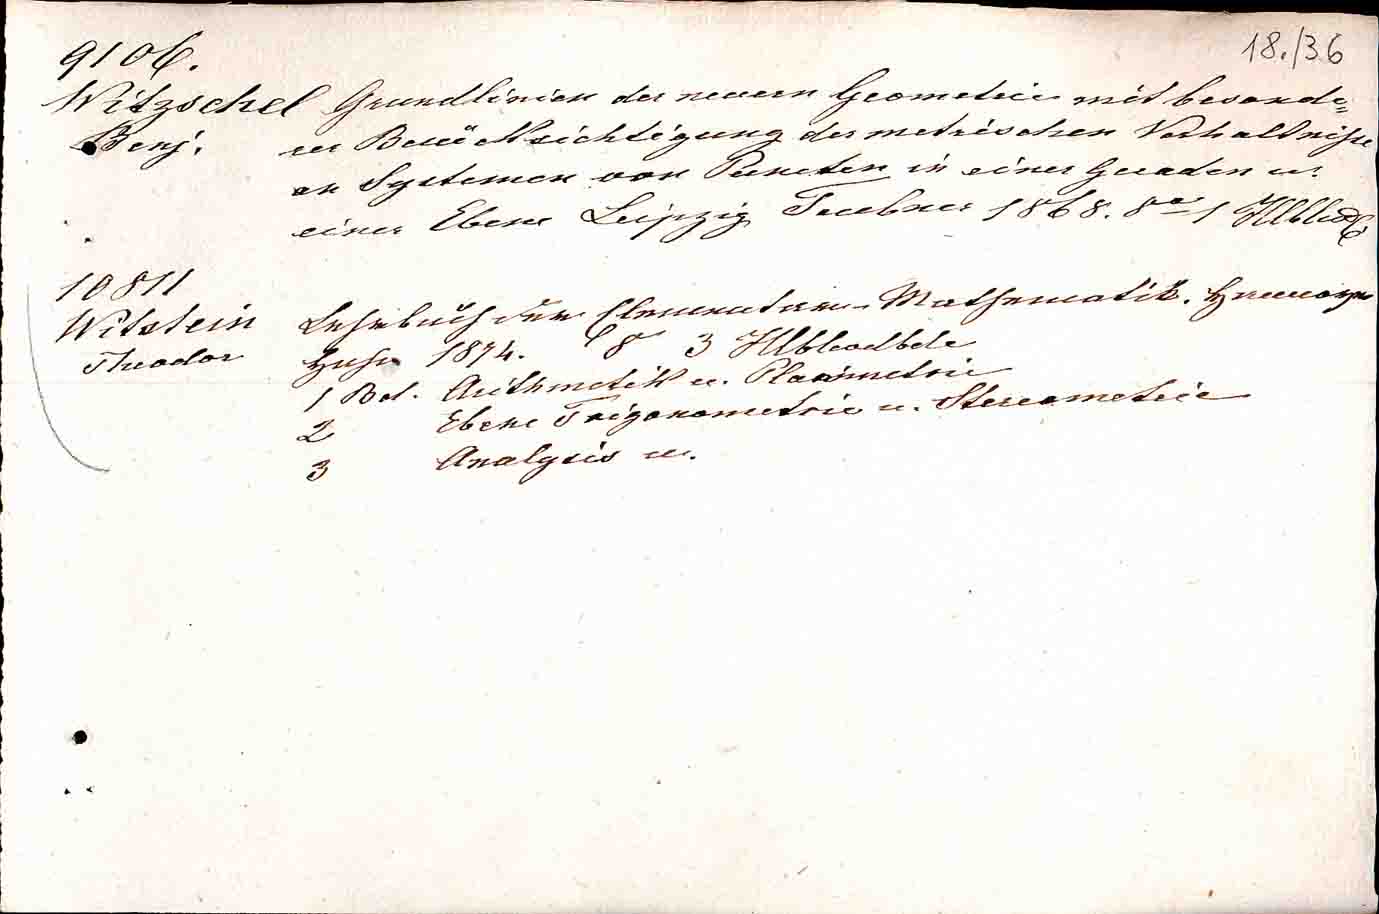 18./36
9106.
Witzschel Grundlinien der neuern Geometrie mit besonde=
Benj. rer Berücksichtigung der metrischen Verhältnisse
an Systemen von Puncten in einer Geraden u.
einer Ebene Leipzig Teubner 1868. 8o 1 Hlbld
10811
Witstein Lehrbuch der Elementar-Mathematik. Hannover
Theodor Hahn 1874. 8 3 Hlbldbde
1 Bd. Arithmetik u. Planimetrie
2 Ebene Trigonometrie u. Stereometrie
3 Analysis u.